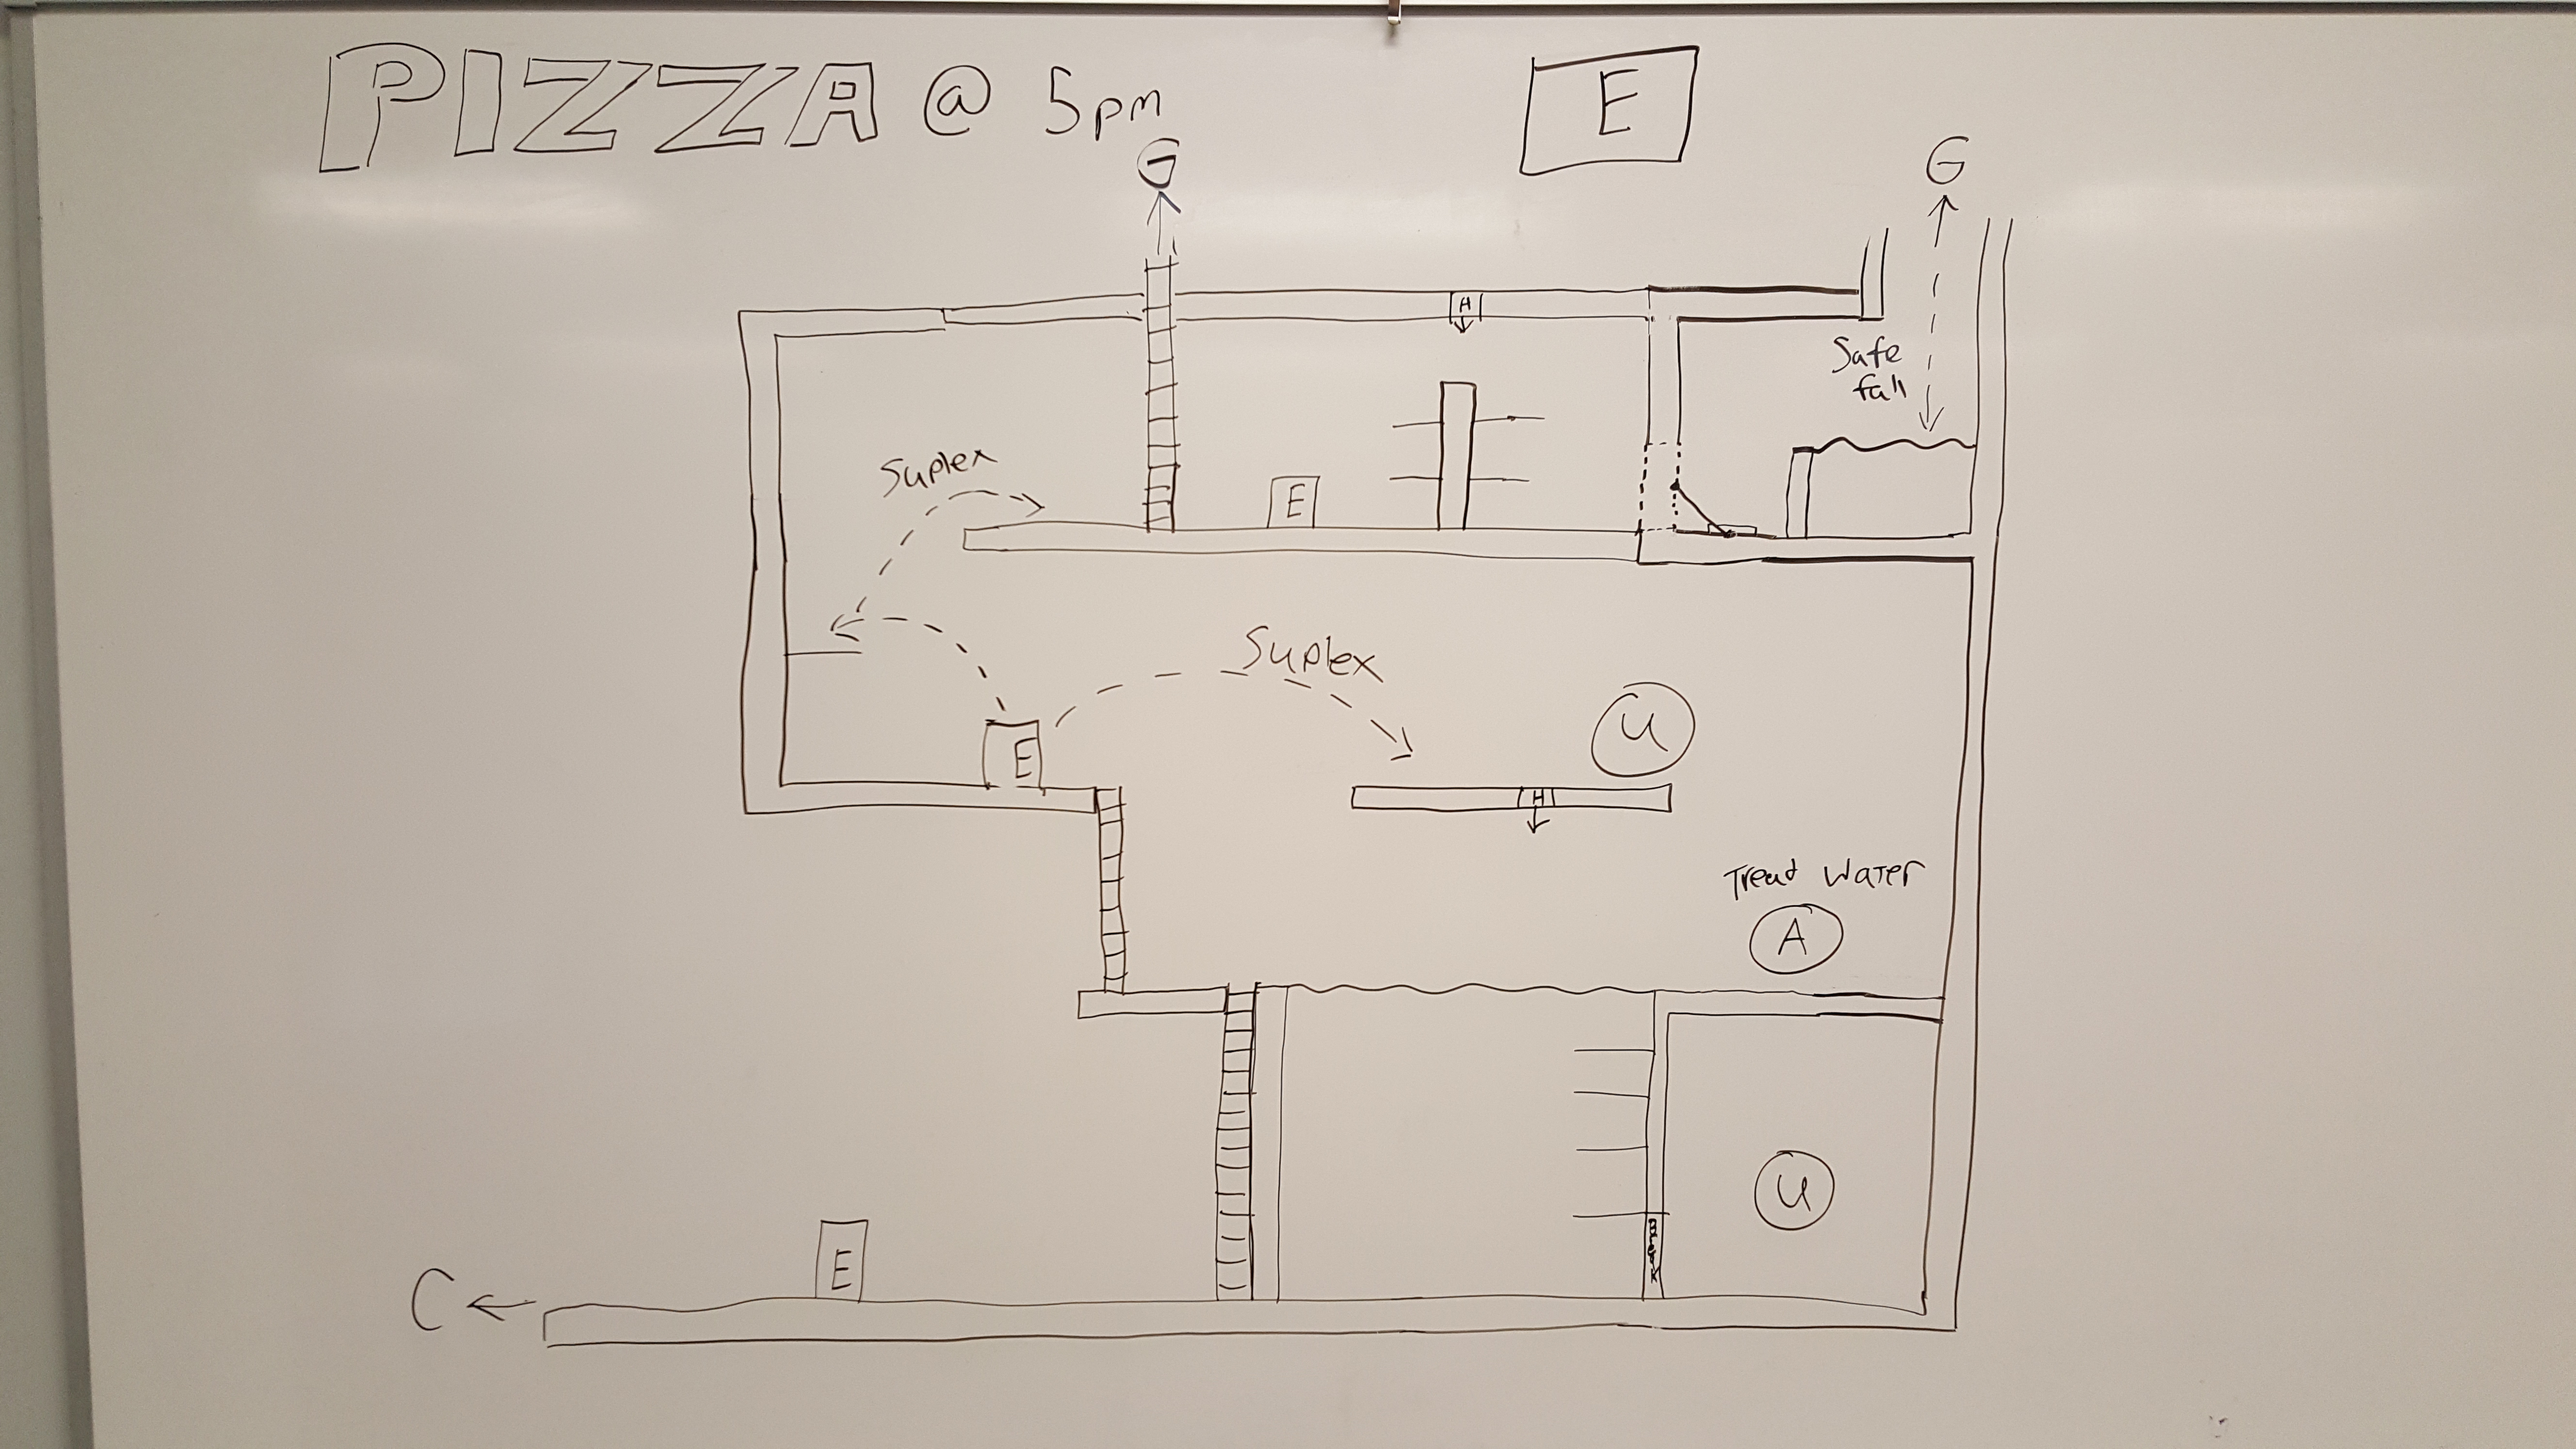 PIZZA @ 5pm
E
G
G
H
Safe
fall
Suplex
E
Suplex
U
E
H
Tread Water
A
U
E
C